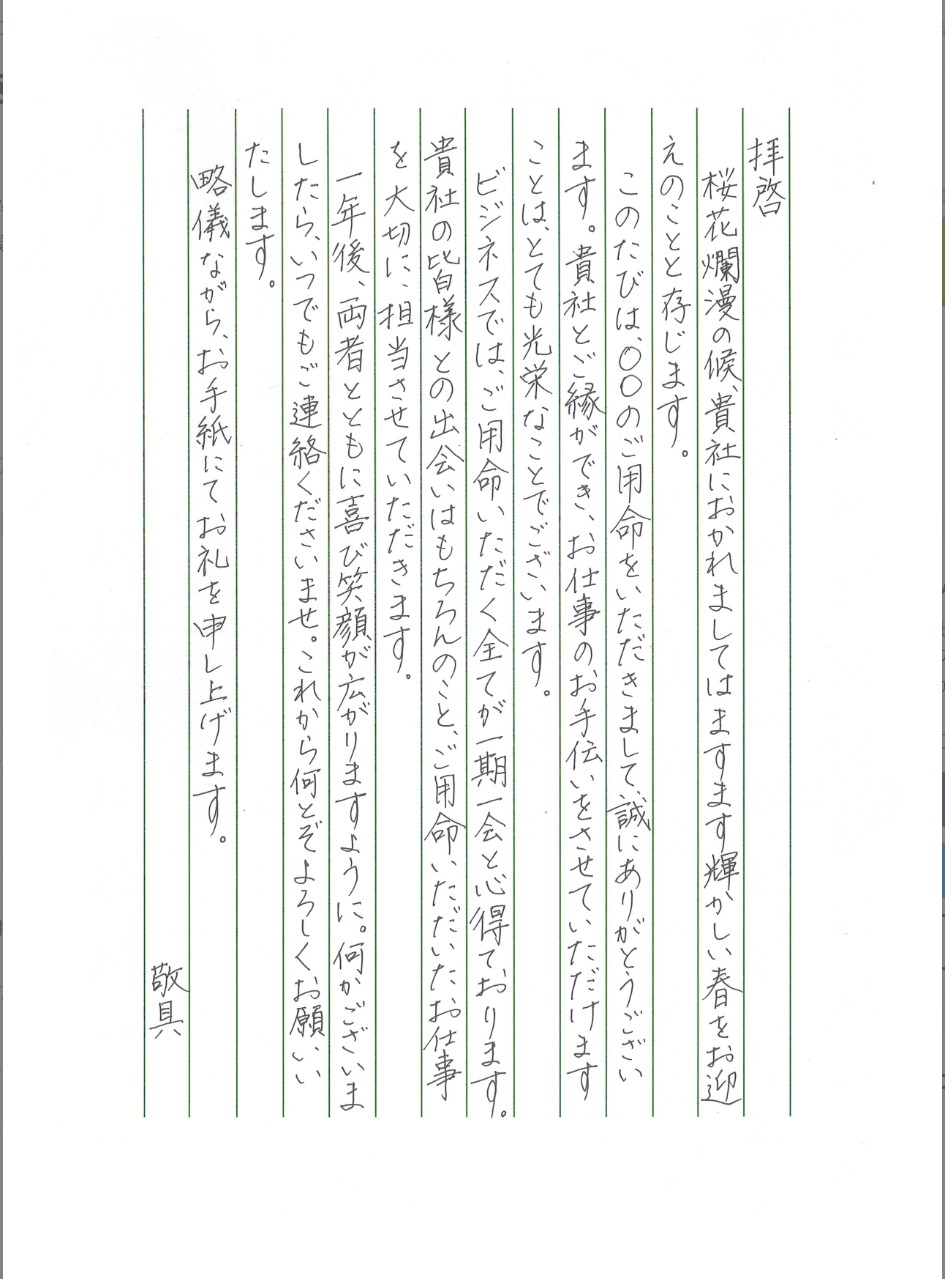 拝啓
桜花爛漫の候、貴社におかれましてはますます輝かしい春をお迎
えのことと存じます。
このたびは、〇〇のご用命をいただきまして、誠にありがとうござい
ます。貴社とご縁ができ、お仕事のお手伝いをさせていただけます
ことは、とても光栄なことでございます。
ビジネスでは、ご用命いただく全てが一期一会と心得ております。
貴社の皆様との出会いはもちろんのこと、ご用命いただいたお仕事
を大切に、担当させていただきます。
一年後、両者とともに喜び笑顔が広がりますように。何かございま
したら、いつでもご連絡くださいませ。これから何とぞよろしくお願いい
たします。
略儀ながら、お手紙にてお礼を申し上げます。
敬具